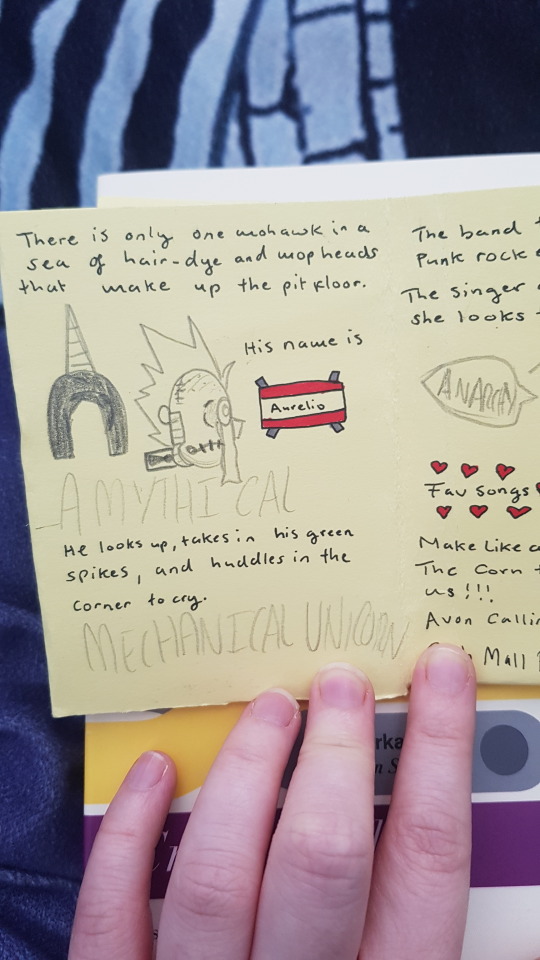 There is only one mohawk in a
sea of hair-dye and mopheads
that make up the pit floor.
His name is
Aurelio
A MYTHICAL
He looks up, takes in his green
spikes, and huddles in the
corner to cry.
MECHANICAL UNICORN
The band
Punk rock
The singer
she looks
ANARCHY
Fav songs
Make Like
The Corn
us!!!
Avon
Mall